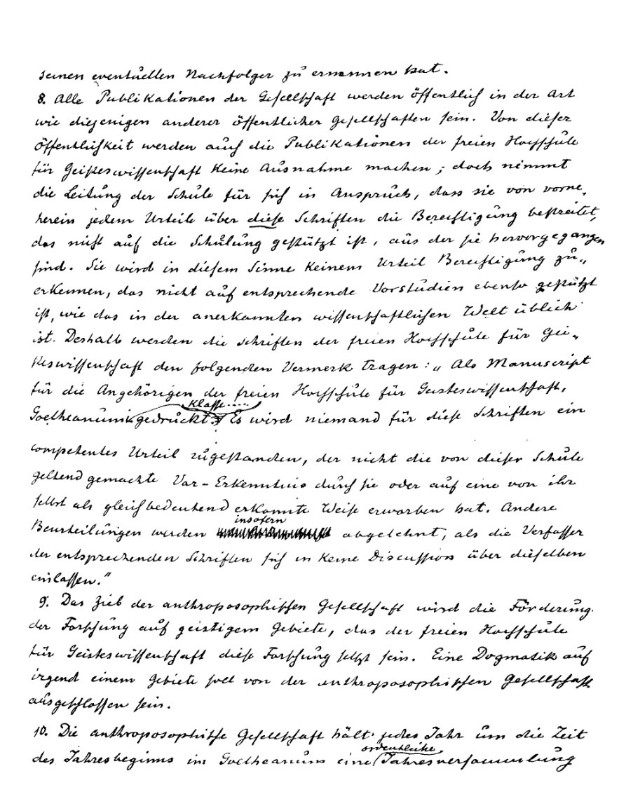 seinen eventuellen Nachfolger zu ernennen hat.
8. Alle Publikationen der Gesellschaft werden öffentlich in der Art
wie diejenigen anderer öffentlicher Gesellschaften sein. Von dieser
Öffentlichkeit werden auch die Publikationen der freien Hochschule
für Geisteswissenschaft keine Ausnahme machen; doch nimmt
die Leitung der Schule für sich in Anspruch, dass sie von vorne-
herein jedem Urteile über diese Schriften die Berechtigung bestreitet,
das nicht auf die Schulung gestützt ist, aus der sie hervorgegangen
sind. Sie wird in diesem Sinne keinem Urteil Berechtigung zu„
erkennen, das nicht auf entsprechende Vorstudien ebenso gestützt
ist, wie das in der anerkannten wissenschaftlichen Welt üblich
ist. Deshalb werden die Schriften der freien Hochschule für Gei-
steswissenschaft den folgenden Vermerk tragen: „Als Manuscript
für die Angehörigen der freien Hochschule für Geisteswissenschaft,
Klasse.....
Goetheanum gedruckt. Es wird niemand für diese Schriften ein
competentes Urteil zugestanden, der nicht die von dieser Schule
geltend gemachte Vor-Erkenntnis durch sie oder auf eine von ihr
selbst als gleichbedeutend erkannte Weise erworben hat. Andere
insofern
Beurteilungen werden abgelehnt, als die Verfasser
der entsprechenden Schriften sich in keine Discussion über dieselben
einlassen."
9. Das Ziel der anthroposophischen Gesellschaft wird die Förderung
der Forschung auf geistigem Gebiete, das der freien Hochschule
für Geisteswissenschaft diese Forschung selbst sein. Eine Dogmatik auf
irgend einem Gebiete soll von der anthroposophischen Gesellschaft
ausgeschlossen sein.
10. Die anthroposophische Gesellschaft hält jedes Jahr um die Zeit
ordentliche
des Jahresbeginns im Goetheanum eine Jahresversammlung